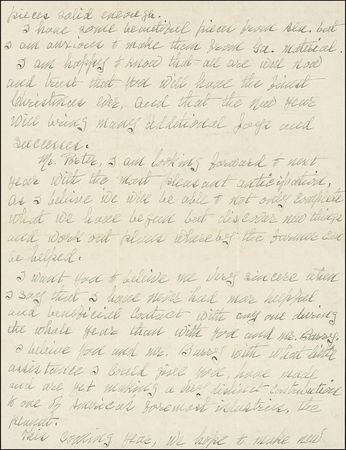 pieces solid enough.
I have some beautiful pieces from Ala. but
I am anxious to make them from Ga. material.
I am happy to know that all are well now
and trust that you will have the finest
Christmas ever, and that the new year
will bring many additional joys and
successes.
Mr. Porter, I am looking forward to next
year with the most pleasant anticipation,
as I believe we will be able to not only complete
what we have begun but discover new things
and work out plans whereby the farmer can
be helped.
I want you to believe me very sincere when
I say that I have never had mor helpful
and beneficial contact with any one during
the whole year than with you and Mr. Barry.
I believe you and Mr. Barry with what little
assistance I could give you, have made
and are yet making a very distinct contribution
to one of America's foremost industries, the
peanut.
This coming year, we hope to make new